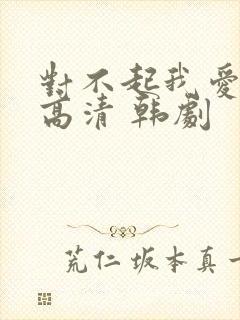 對不起我愛
高清 韩劇
荒仁坂本真一